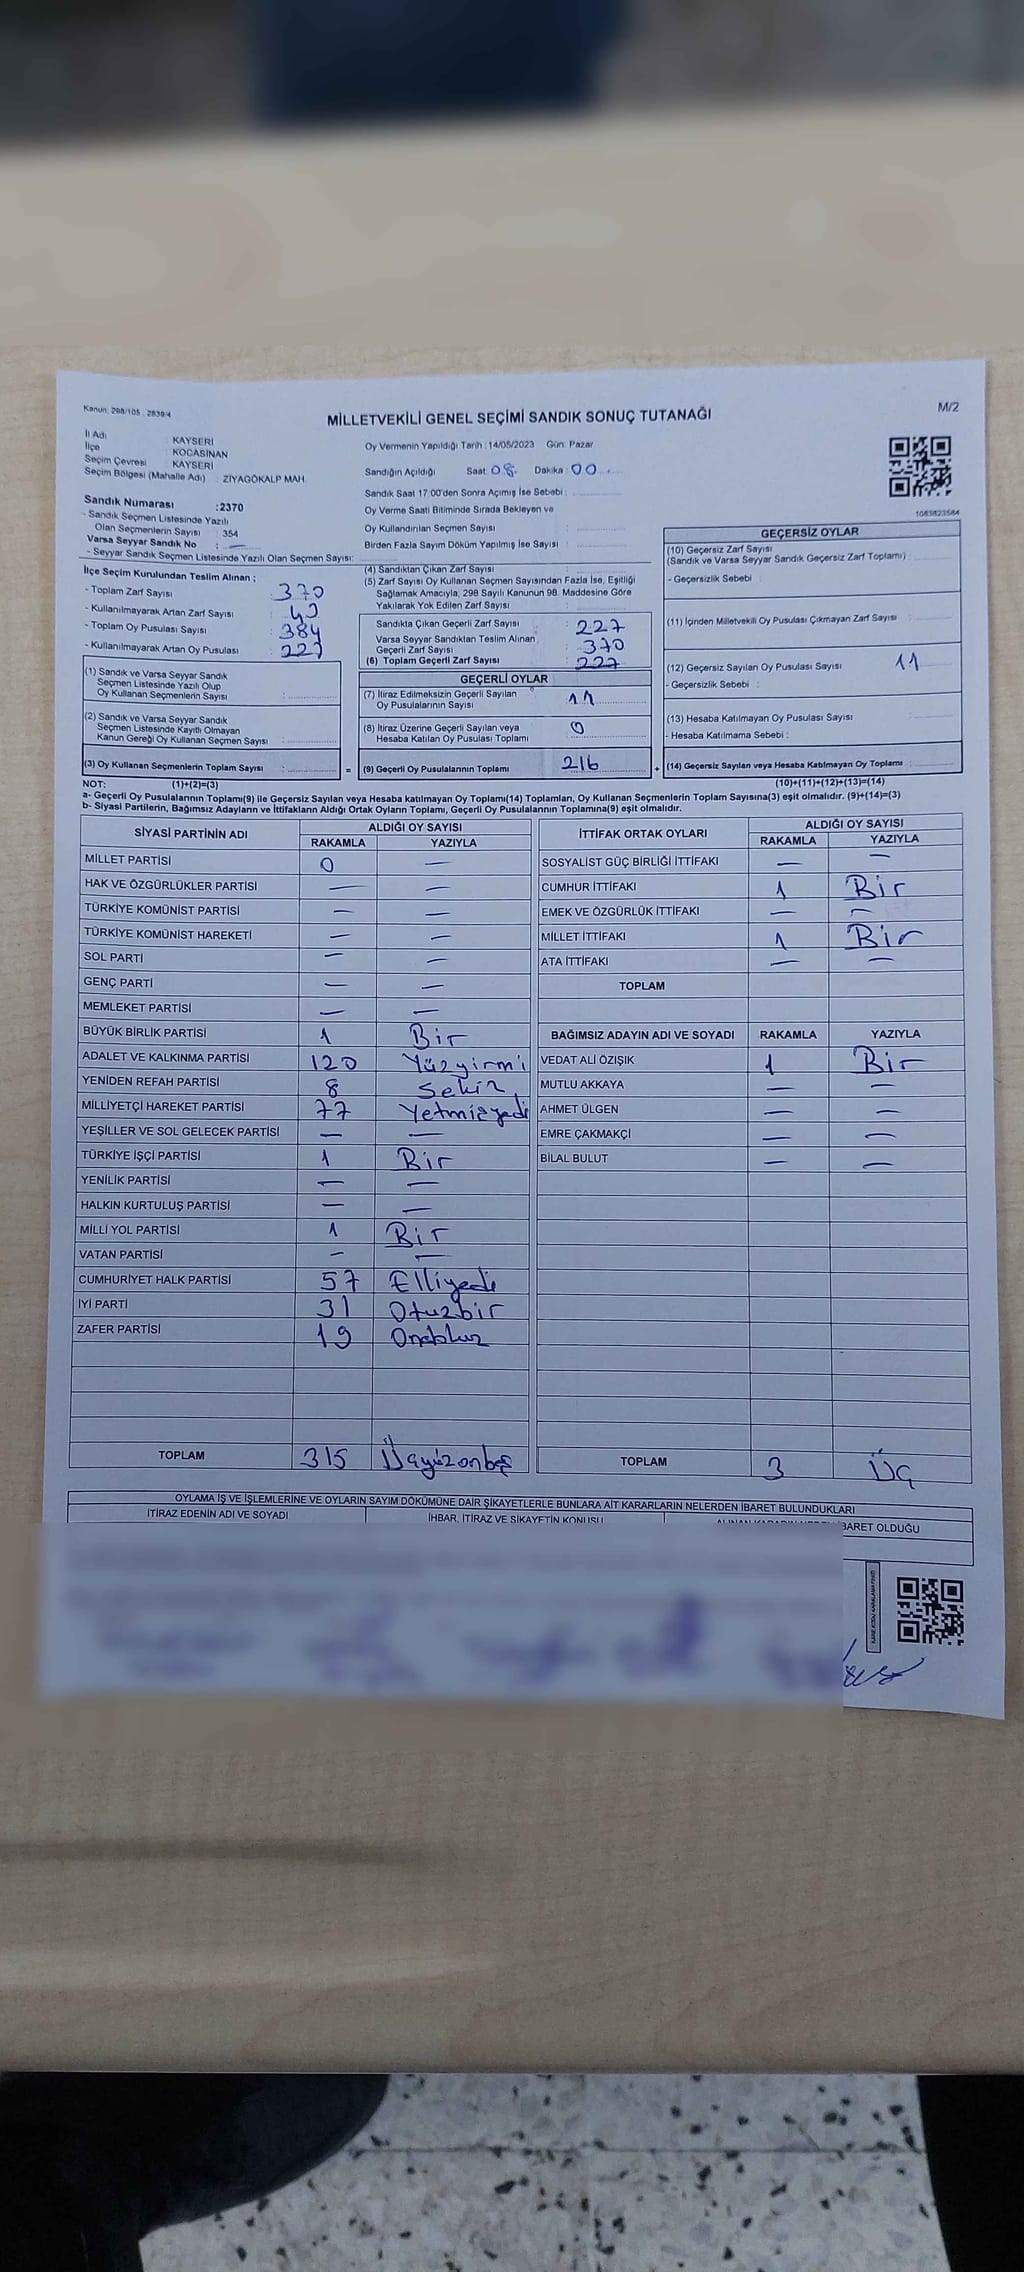 Kanun: 298/105 , 2839/4
MİLLETVEKİLİ GENEL SEÇİMİ SANDIK SONUÇ TUTANAĞI
M/2
İl Adı : KAYSERİ
İlçe : KOCASİNAN
Seçim Çevresi : KAYSERİ
Seçim Bölgesi (Mahalle Adı) : ZİYAGÖKALP MAH.
Oy Vermenin Yapıldığı Tarih :14/05/2023 Gün: Pazar
Sandığın Açıldığı Saat: 08 Dakika : 00
Sandık Saat 17:00'den Sonra Açımış İse Sebebi :
Oy Verme Saati Bitiminde Sırada Bekleyen ve
Oy Kullandırılan Seçmen Sayısı :
Birden Fazla Sayım Döküm Yapılmış İse Sayısı :
Sandık Numarası :2370
- Sandık Seçmen Listesinde Yazılı
Olan Seçmenlerin Sayısı : 354
Varsa Seyyar Sandık No : —
- Seyyar Sandık Seçmen Listesinde Yazılı Olan Seçmen Sayısı:
1083823584
İlçe Seçim Kurulundan Teslim Alınan ;
- Toplam Zarf Sayısı : 370
- Kullanılmayarak Artan Zarf Sayısı :
- Toplam Oy Pusulası Sayısı : 384
- Kullanılmayarak Artan Oy Pusulası : 227
(1) Sandık ve Varsa Seyyar Sandık
Seçmen Listesinde Yazılı Olup
Oy Kullanan Seçmenlerin Sayısı :
(2) Sandık ve Varsa Seyyar Sandık
Seçmen Listesinde Kayıtlı Olmayan
Kanun Gereği Oy Kullanan Seçmen Sayısı :
(3) Oy Kullanan Seçmenlerin Toplam Sayısı :
(4) Sandıktan Çıkan Zarf Sayısı :
(5) Zarf Sayısı Oy Kullanan Seçmen Sayısından Fazla İse, Eşitliği
Sağlamak Amacıyla, 298 Sayılı Kanunun 98. Maddesine Göre
Yakılarak Yok Edilen Zarf Sayısı :
Sandıkta Çıkan Geçerli Zarf Sayısı : 227
Varsa Seyyar Sandıktan Teslim Alınan
Geçerli Zarf Sayısı : 370
(6) Toplam Geçerli Zarf Sayısı : 227
GEÇERLİ OYLAR
(7) İtiraz Edilmeksizin Geçerli Sayılan
Oy Pusulalarının Sayısı : 11
(8) İtiraz Üzerine Geçerli Sayılan veya
Hesaba Katılan Oy Pusulası Toplamı : 0
= (9) Geçerli Oy Pusulalarının Toplamı : 216
GEÇERSİZ OYLAR
(10) Geçersiz Zarf Sayısı
(Sandık ve Varsa Seyyar Sandık Geçersiz Zarf Toplamı) :
- Geçersizlik Sebebi :
(11) İçinden Milletvekili Oy Pusulası Çıkmayan Zarf Sayısı :
(12) Geçersiz Sayılan Oy Pusulası Sayısı : 11
- Geçersizlik Sebebi :
(13) Hesaba Katılmayan Oy Pusulası Sayısı :
- Hesaba Katılmama Sebebi :
+ (14) Geçersiz Sayılan veya Hesaba Katılmayan Oy Toplamı :
NOT: (1)+(2)=(3)
(10)+(11)+(12)+(13)=(14)
a- Geçerli Oy Pusulalarının Toplamı(9) ile Geçersiz Sayılan veya Hesaba katılmayan Oy Toplamı(14) Toplamları, Oy Kullanan Seçmenlerin Toplam Sayısına(3) eşit olmalıdır. (9)+(14)=(3)
b- Siyasi Partilerin, Bağımsız Adayların ve İttifakların Aldığı Ortak Oyların Toplamı, Geçerli Oy Pusulalarının Toplamına(9) eşit olmalıdır.
SİYASİ PARTİNİN ADI ALDIĞI OY SAYISI
RAKAMLA YAZIYLA
MİLLET PARTİSİ 0 —
HAK VE ÖZGÜRLÜKLER PARTİSİ — —
TÜRKİYE KOMÜNİST PARTİSİ — —
TÜRKİYE KOMÜNİST HAREKETİ — —
SOL PARTİ — —
GENÇ PARTİ — —
MEMLEKET PARTİSİ — —
BÜYÜK BİRLİK PARTİSİ 1 Bir
ADALET VE KALKINMA PARTİSİ 120 Yüzyirmi
YENİDEN REFAH PARTİSİ 8 Sekiz
MİLLİYETÇİ HAREKET PARTİSİ 77 Yetmişyedi
YEŞİLLER VE SOL GELECEK PARTİSİ — —
TÜRKİYE İŞÇİ PARTİSİ 1 Bir
YENİLİK PARTİSİ — —
HALKIN KURTULUŞ PARTİSİ — —
MİLLİ YOL PARTİSİ 1 Bir
VATAN PARTİSİ — —
CUMHURİYET HALK PARTİSİ 57 Elliyedi
İYİ PARTİ 31 Otuzbir
ZAFER PARTİSİ 19 Ondokuz
TOPLAM 315 Üçyüzonbeş
İTTİFAK ORTAK OYLARI ALDIĞI OY SAYISI
RAKAMLA YAZIYLA
SOSYALİST GÜÇ BİRLİĞİ İTTİFAKI — —
CUMHUR İTTİFAKI 1 Bir
EMEK VE ÖZGÜRLÜK İTTİFAKI — —
MİLLET İTTİFAKI 1 Bir
ATA İTTİFAKI — —
TOPLAM
BAĞIMSIZ ADAYIN ADI VE SOYADI RAKAMLA YAZIYLA
VEDAT ALİ ÖZIŞIK 1 Bir
MUTLU AKKAYA — —
AHMET ÜLGEN — —
EMRE ÇAKMAKÇİ — —
BİLAL BULUT — —
TOPLAM 3 Üç
OYLAMA İŞ VE İŞLEMLERİNE VE OYLARIN SAYIM DÖKÜMÜNE DAİR ŞİKAYETLERLE BUNLARA AİT KARARLARIN NELERDEN İBARET BULUNDUKLARI
İTİRAZ EDENİN ADI VE SOYADI İHBAR, İTİRAZ VE ŞİKAYETİN KONUSU İBARET OLDUĞU